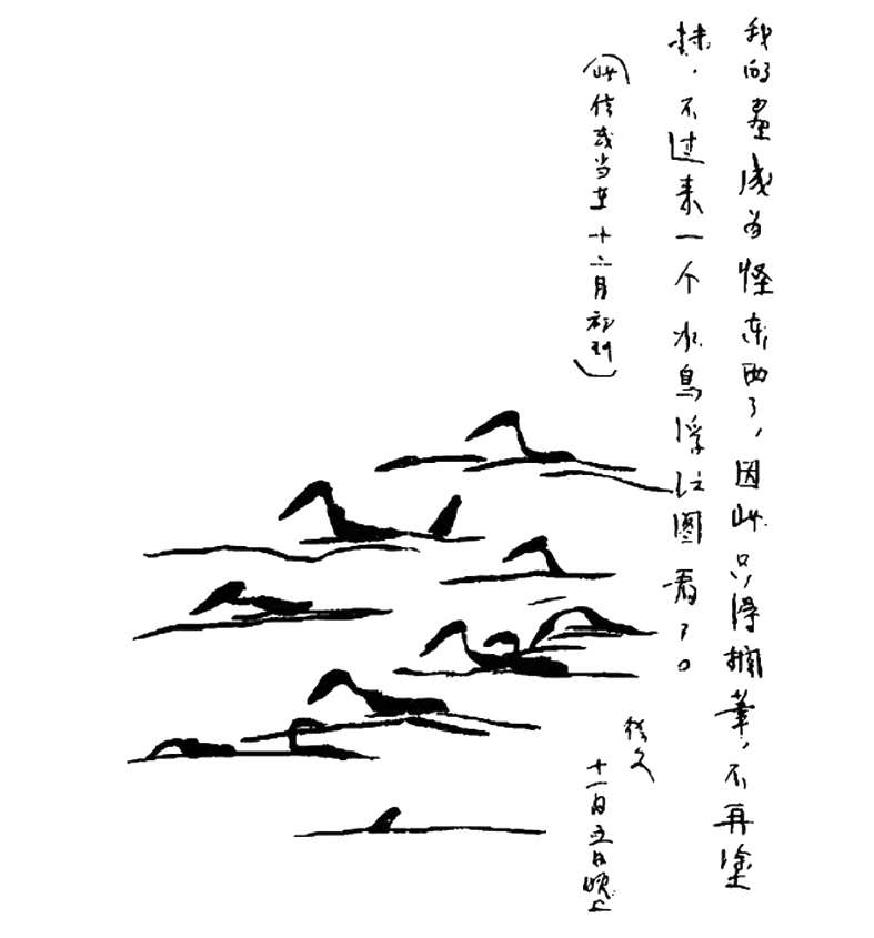 我的畫成为怪东西了，因此只得擱筆，不再塗
抹。不过来一个水鸟浮图看了。
（此信或当在十二月初到）
從文
十一月五日晚上